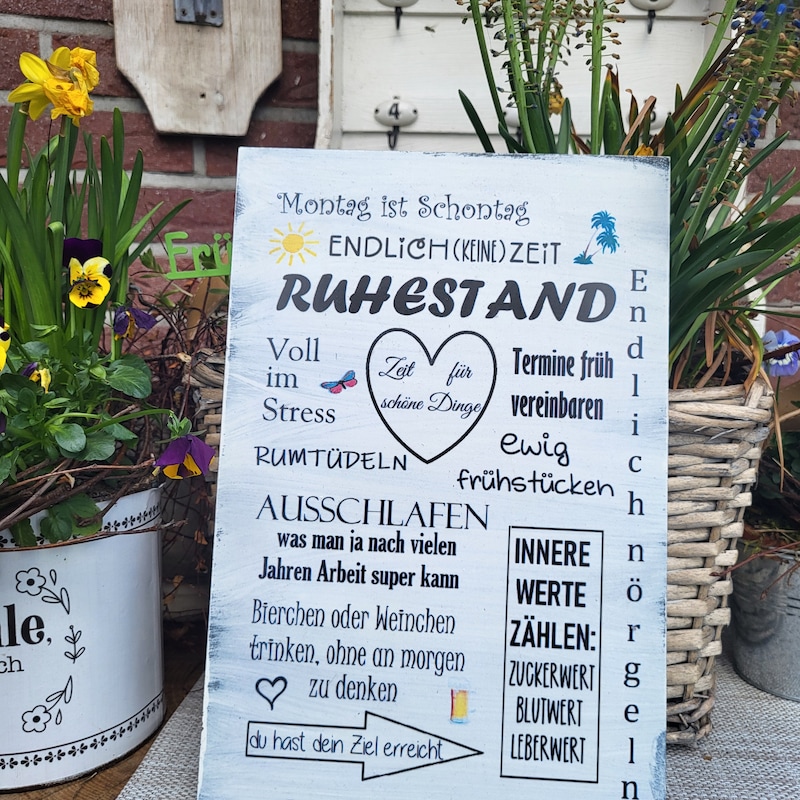 4
Frü
Montag ist Schontag
ENDLICH (KEINE) ZEIT
RUHESTAND
Voll
im
Stress
Zeit für
schöne Dinge
Termine früh
vereinbaren
RUMTÜDELN
ewig
frühstücken
AUSSCHLAFEN
was man ja nach vielen
Jahren Arbeit super kann
Bierchen oder Weinchen
trinken, ohne an morgen
zu denken
du hast dein Ziel erreicht
INNERE
WERTE
ZÄHLEN:
ZUCKERWERT
BLUTWERT
LEBERWERT
Endlich nörgeln
le,
ch